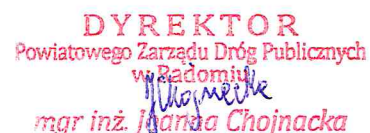 DYREKTOR
Powiatowego Zarządu Dróg Publicznych
w Radomiu
mgr inż. Joanna Chojnacka